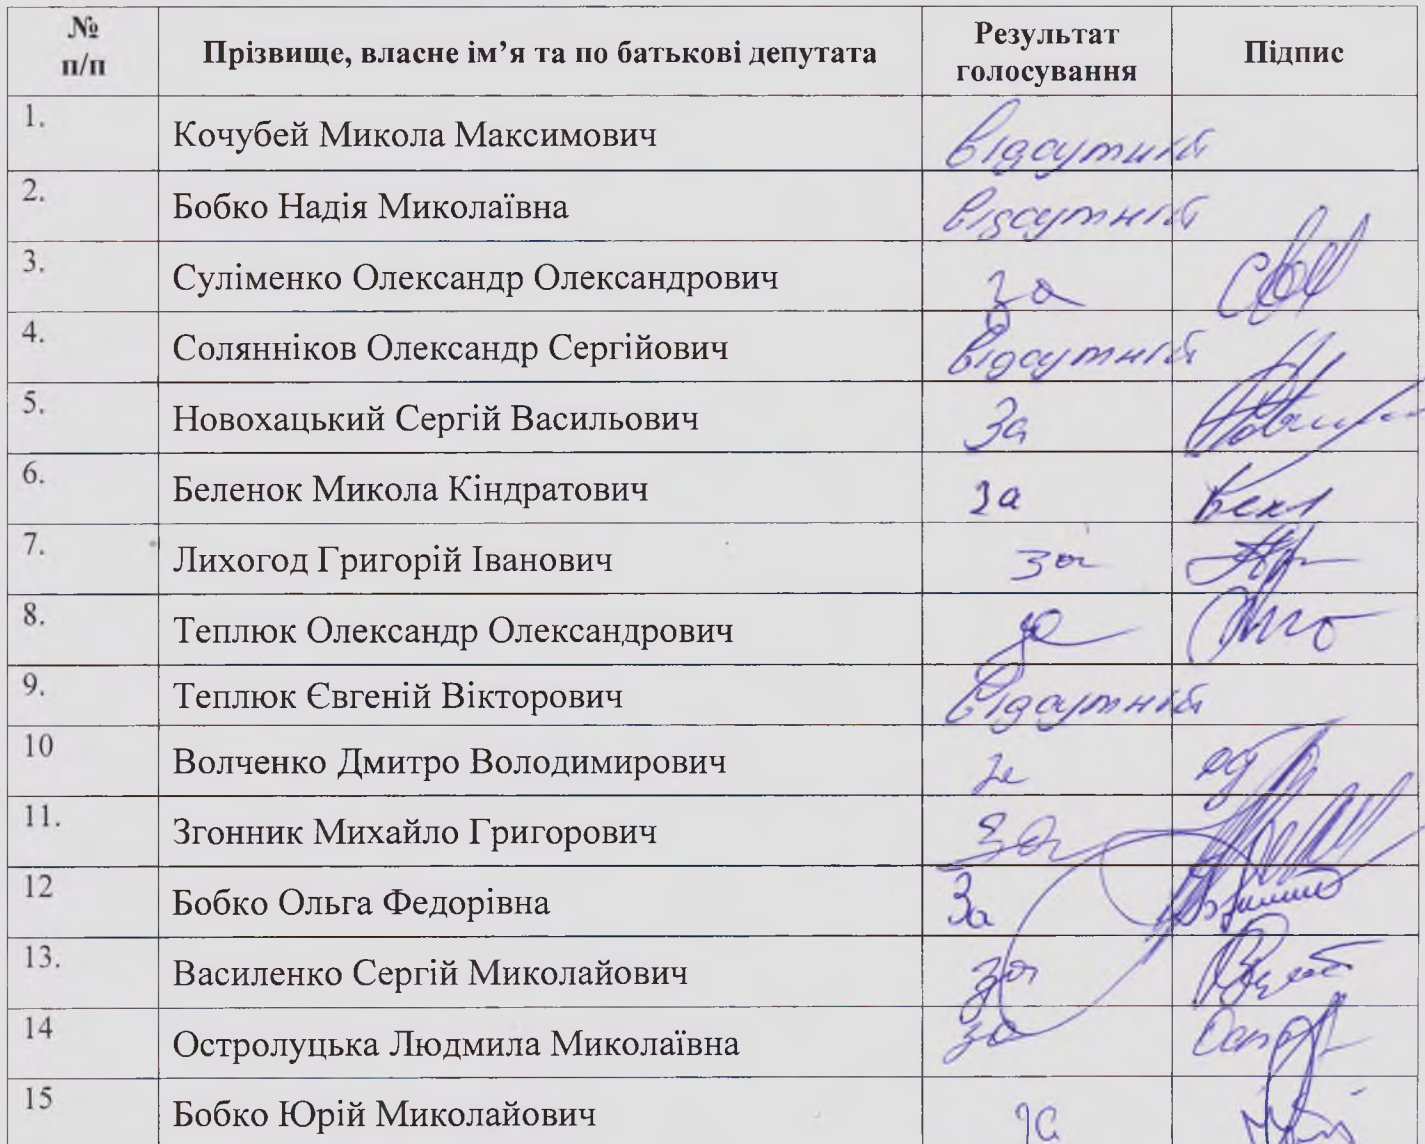 № п/п Прізвище, власне ім’я та по батькові депутата Результат голосування Підпис
1. Кочубей Микола Максимович відсутній
2. Бобко Надія Миколаївна відсутній
3. Суліменко Олександр Олександрович за
4. Солянніков Олександр Сергійович відсутній
5. Новохацький Сергій Васильович За
6. Беленок Микола Кіндратович за
7. Лихогод Григорій Іванович за
8. Теплюк Олександр Олександрович за
9. Теплюк Євгеній Вікторович відсутній
10 Волченко Дмитро Володимирович за
11. Згонник Михайло Григорович за
12 Бобко Ольга Федорівна За
13. Василенко Сергій Миколайович за
14 Остролуцька Людмила Миколаївна за
15 Бобко Юрій Миколайович за